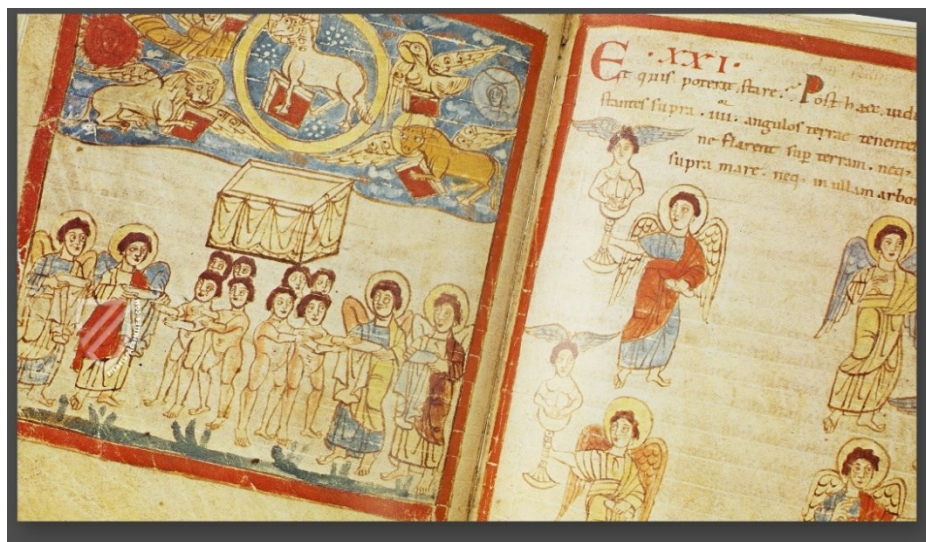 · XXI ·
Et quis poterit stare. Post haec uidi
stantes supra · IIII · angulos terrae tenente
ne flarent sup terram · neq·
supra mare · neq · in ullam arbo